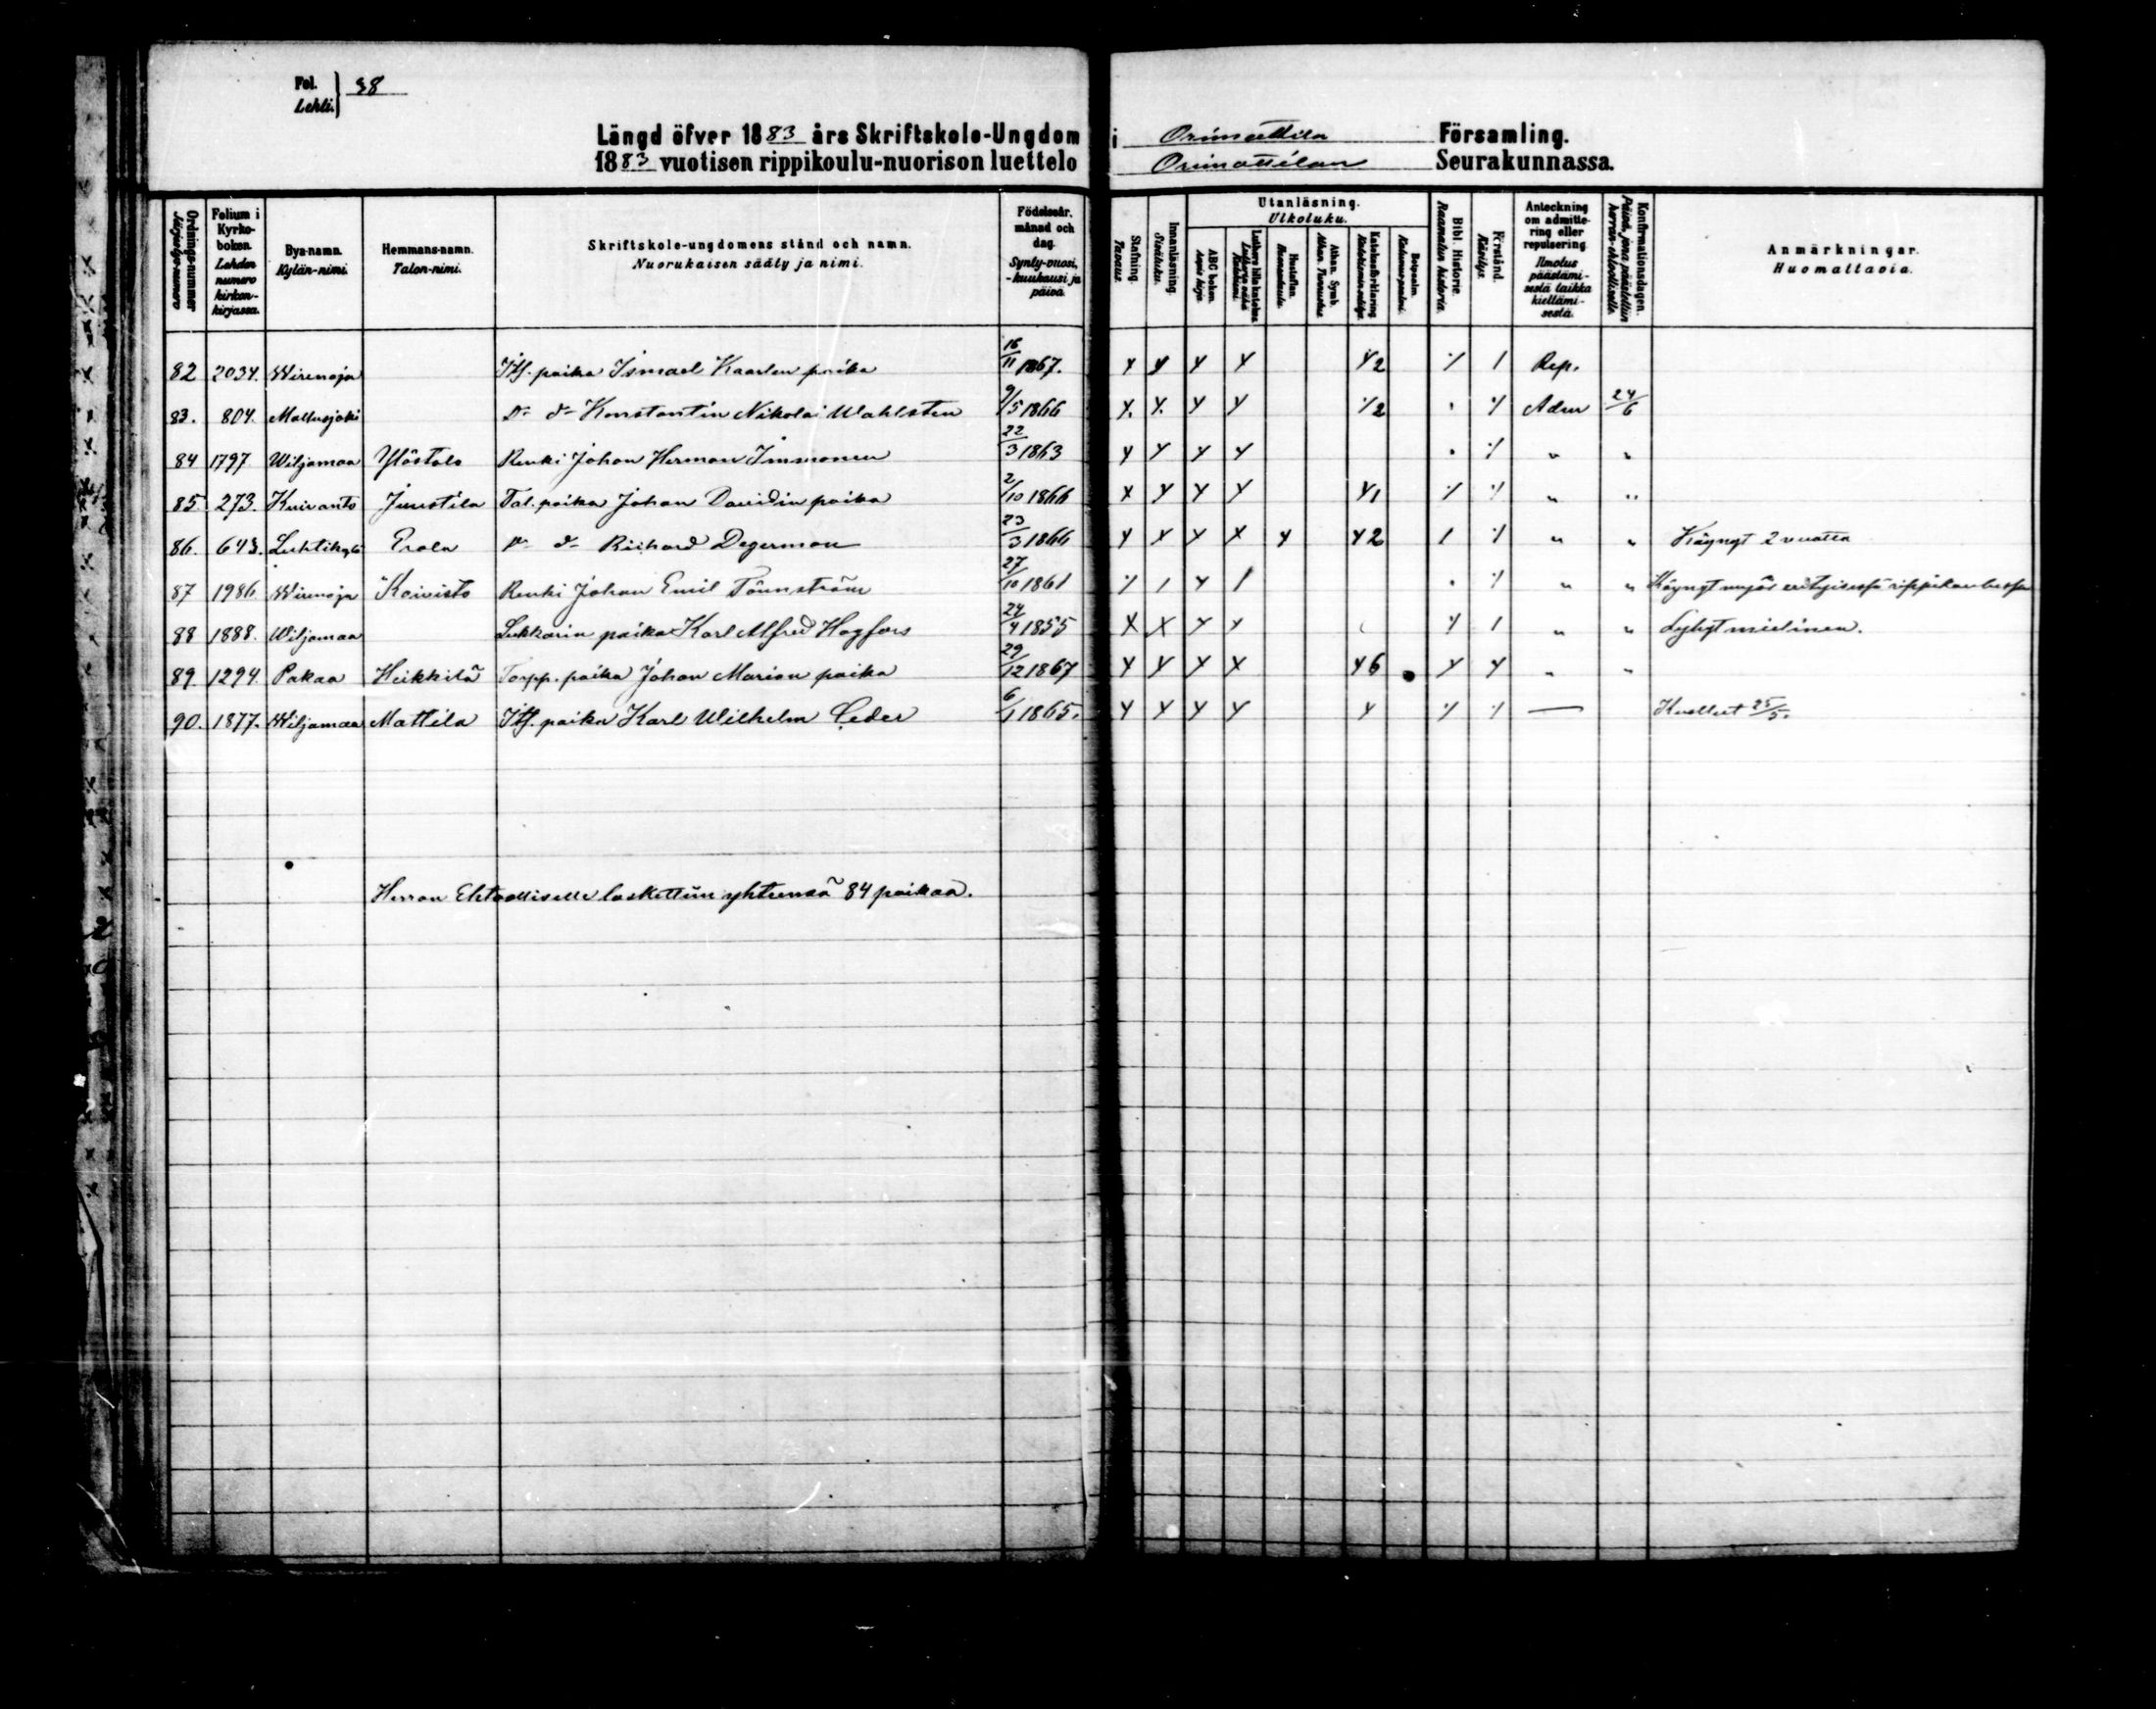 Fol. Lehti. 38
Längd öfver 1883 års Skriftskole-Ungdom i Orimattila Församling.
1883 vuotisen rippikoulu-nuorison luettelo Orimattilan Seurakunnassa.
Ordnings-nummer Järjestys-numero
Folium i Kyrko-boken. Lehden numero kirkon-kirjassa.
Bya-namn. Kylän-nimi.
Hemmans-namn. Talon-nimi.
Skriftskole-ungdomens stånd och namn. Nuorukaisen sääty ja nimi.
Födelseår, månad och dag. Synty-vuosi, -kuukausi ja päivä.
Stafning. Tavaus.
Innanläsning. Sisäluku.
Utanläsning. Ulkoluku.
ABC boken. Aapis kirja.
Luthers lilla kateches
Hustaflan. Huoneentaulu.
Athan. Symb. Athan. Tunnustus.
Katekesförklaring
Botpsalm. Katumus-psalmi.
Bibl. Historie. Raamatun historia.
Förstånd. Käsitys.
Anteckning om admitte-ring eller repulsering. Ilmotus päästämi-sestä taikka kieltämi-sestä.
Konfirmationsdagen. Päivä, jona päästettiin herran-ehtoolliselle.
Anmärkningar. Huomattavia.
82 2034. Wirenoja Itß. poika Ismael Kaarlen poika 16/11 1867. Y Y Y Y Y2 ٪ 1 Rep.
83. 804. Mallusjoki Dn dn Konstantin Nikolai Wahlsten 9/5 1866 Y. Y. Y Y ٪2 . ٪ Adm 24/6
84 1797 Wiljamaa Ylöstalo Renki Johan Herman Immonen 22/3 1863 Y Y Y Y . ٪ " "
85. 273. Kuivanto Juustila Tal. poika Johan Davidin poika 2/10 1866 X Y Y Y Y1 ٪ ٪ " "
86. 643. Luhtikylä Erola Dn dn Richard Degerman 23/3 1866 Y X Y X Y Y2 1 ٪ " " Käynyt 2 vuotta
87 1986 Wirenoja Koivisto Renki Johan Emil Tönnström 27/10 1861 ٪ 1 Y 1 . ٪ " " Käynyt myös erityisessä rippikoulussa
88 1888. Wiljamaa Lukkarin poika Karl Alfred Hagfors 24/4 1855 X X Y Y ٪ 1 " " Lyhytmielinen.
89. 1294. Pakaa Heikkilä Torpp. poika Johan Marian poika 29/12 1867 Y Y Y X Y6 Y Y " "
90. 1877. Wiljamaa Mattila Itß. poika Karl Wilhelm Ceder 6/1 1865. Y Y Y Y Y ٪ ٪ — Kuollut 25/5.
Herran Ehtoolliselle laskettiin yhteensä 84 poikaa.